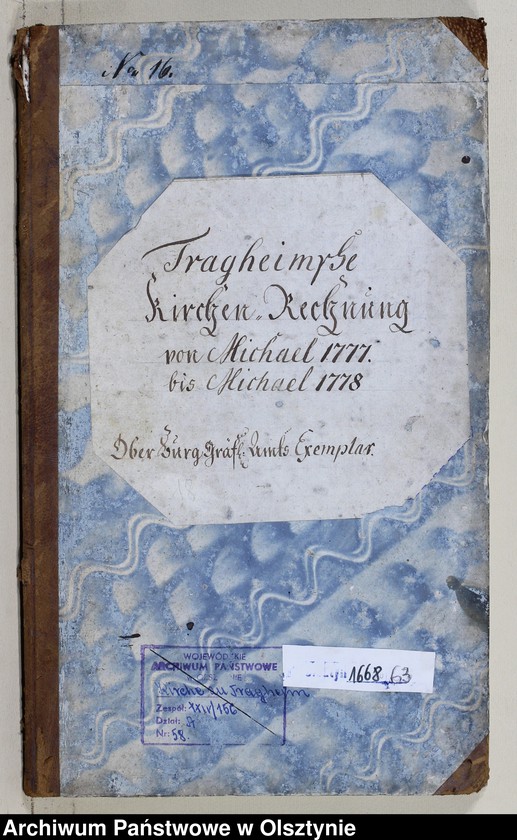 No 16.
Tragheimsche
Kirchen-Rechnung
von Michael 1777.
bis Michael 1778
Ober Burg Gräfl. Amts Exemplar.
WOJEWÓDZKIE
ARCHIWUM PAŃSTWOWE
Kirche zu Tragheim
Zespół: XXIV/156
Dział: A
Nr: 58.
1668 63
Archiwum Państwowe w Olsztynie